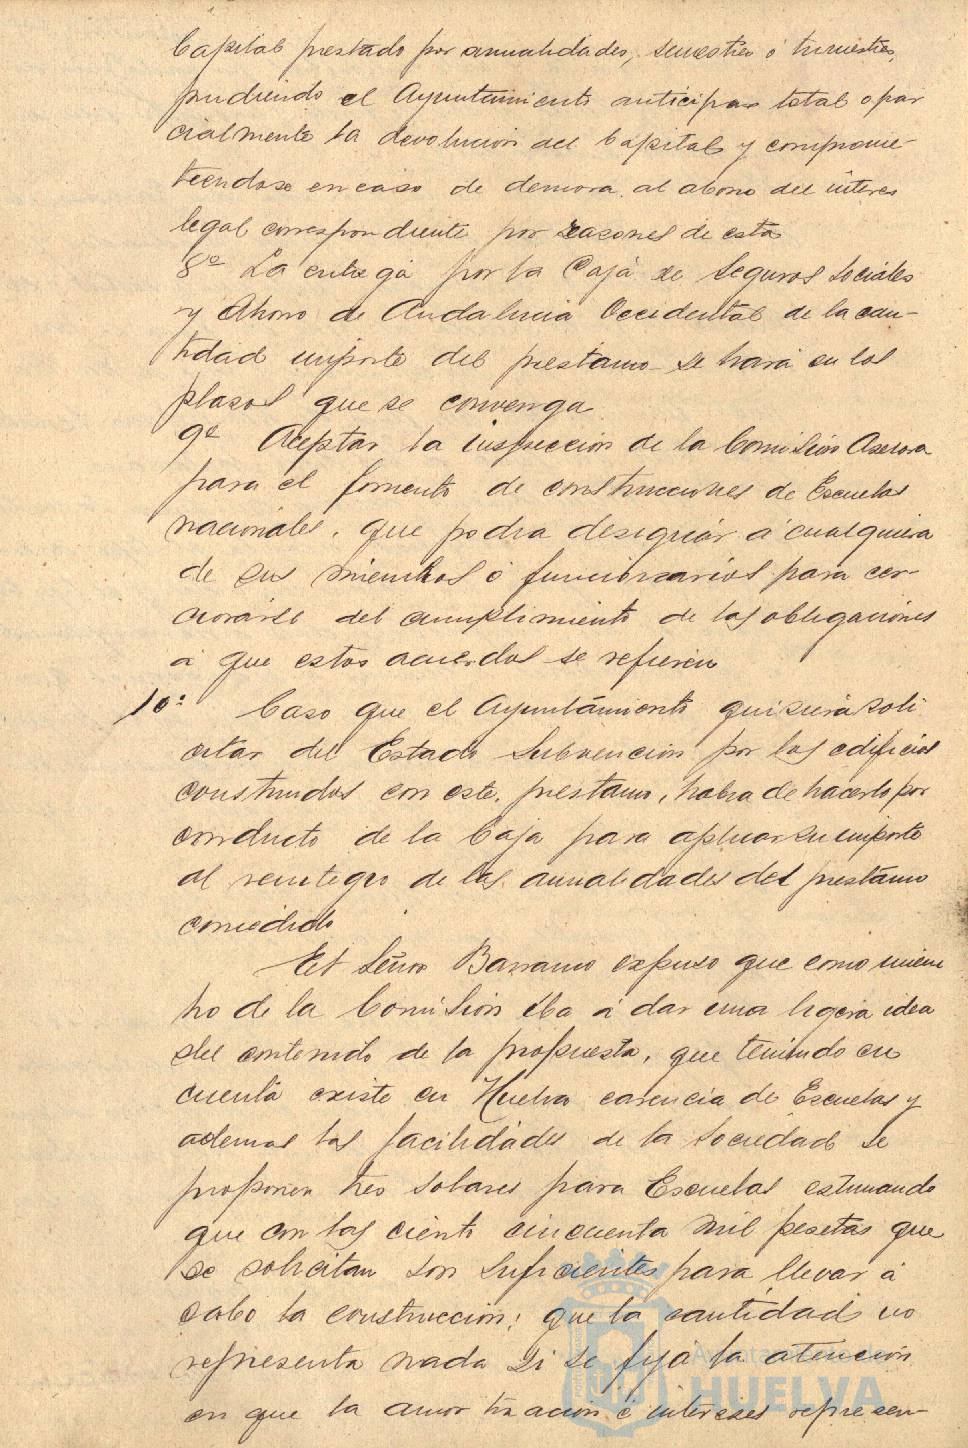 Capital prestado por anualidades, semestres ó trimestres,
pudiendo el Ayuntamiento anticipar total o par
cialmente la devolucion del Capital y comprome-
tiendose en caso de demora al abono del interes
legal correspondiente por razones de esta
8º La entrega por la Caja de Seguros Sociales
y Ahorro de Andalucia Occidental de la can-
tidad importe del prestamo se hará en los
plasos que se convenga
9º Aceptar la inspeccion de la Comision Asesora
para el fomento de construcciones de Escuelas
nacionales, que podra designar á cualquiera
de sus miembros ó funcionarios para cer-
ciorarse del cumplimiento de las obligaciones
á que estos acuerdos se refieren
10º Caso que el Ayuntamiento quisiera soli
citar del Estado Subvencion por los edificios
construidos con este prestamo, habra de hacerlo por
conducto de la Caja para aplicar su importe
al reintegro de las anualidades del prestamo
concedido
El Señor Barranco expuso que como miem
bro de la Comision iba á dar una ligera idea
del contenido de la propuesta, que teniendo en
cuenta existe en Huelva carencia de Escuelas y
ademas las facilidades de la Sociedad se
proponen tres solares para Escuelas estimando
que con las ciento cincuenta mil pesetas que
se solicitan son suficientes para llevar á
cabo la construccion; que la cantidad no
representa nada si se fija la atencion
en que la amortizacion é intereses represen-
Ayuntamiento de
HUELVA